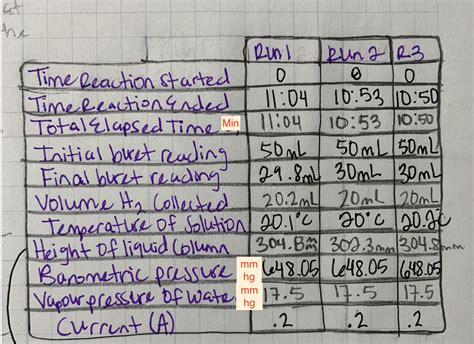 the
Run 1 Run 2 R3
Time Reaction started 0 0 0
Time Reaction Ended 11:04 10:53 10:50
Total Elapsed Time Min 11:04 10:53 10:50
Initial buret reading 50mL 50mL 50mL
Final buret reading 29.8mL 30mL 30mL
Volume H2 Collected 20.2mL 20mL 20mL
Temperature of Solution 20.1°C 20°C 20.2C
Height of liquid Column 304.8mm 302.3mm 304.8mm
Barometric pressure mm hg 648.05 648.05 648.05
Vapour pressure of Water mm hg 17.5 17.5 17.5
Current (A) .2 .2 .2